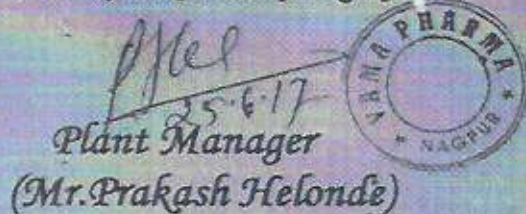 25.6.17
VRMA PHARMA
* NAGPUR *
Plant Manager
(Mr.Prakash Helonde)